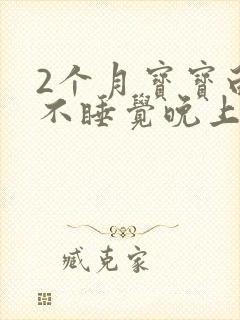 2个月寶寶
不睡覺晚上
臧克家